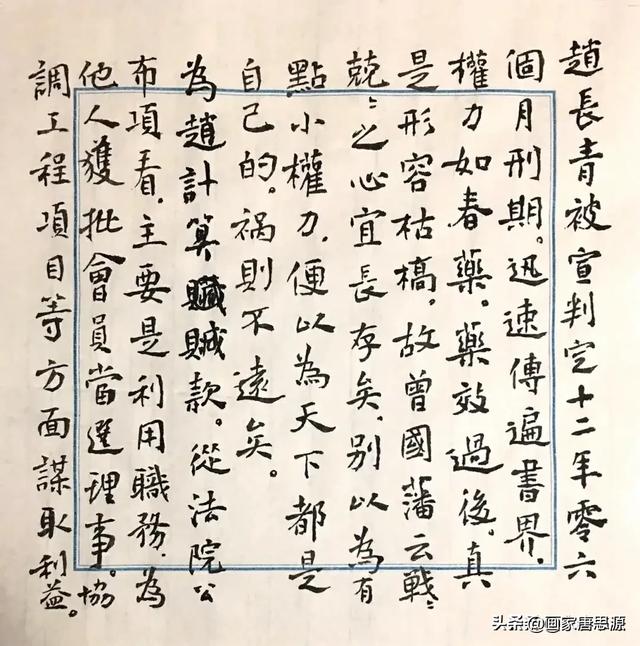 趙長青被宣判定十二年零六
個月刑期。迅速傳遍書界。
權力如春藥。藥效過後。真
是形容枯槁。故曾國藩云戰〻
兢〻之心宜長存矣。別以為有
點小權力。便以為天下都是
自己的。祸則不遠矣。
為趙計算贓贓款。從法院公
布項看。主要是利用職務。為
他人獲批會員當選理事。協
調工程項目等方面謀取利益。
头条@画家唐思源